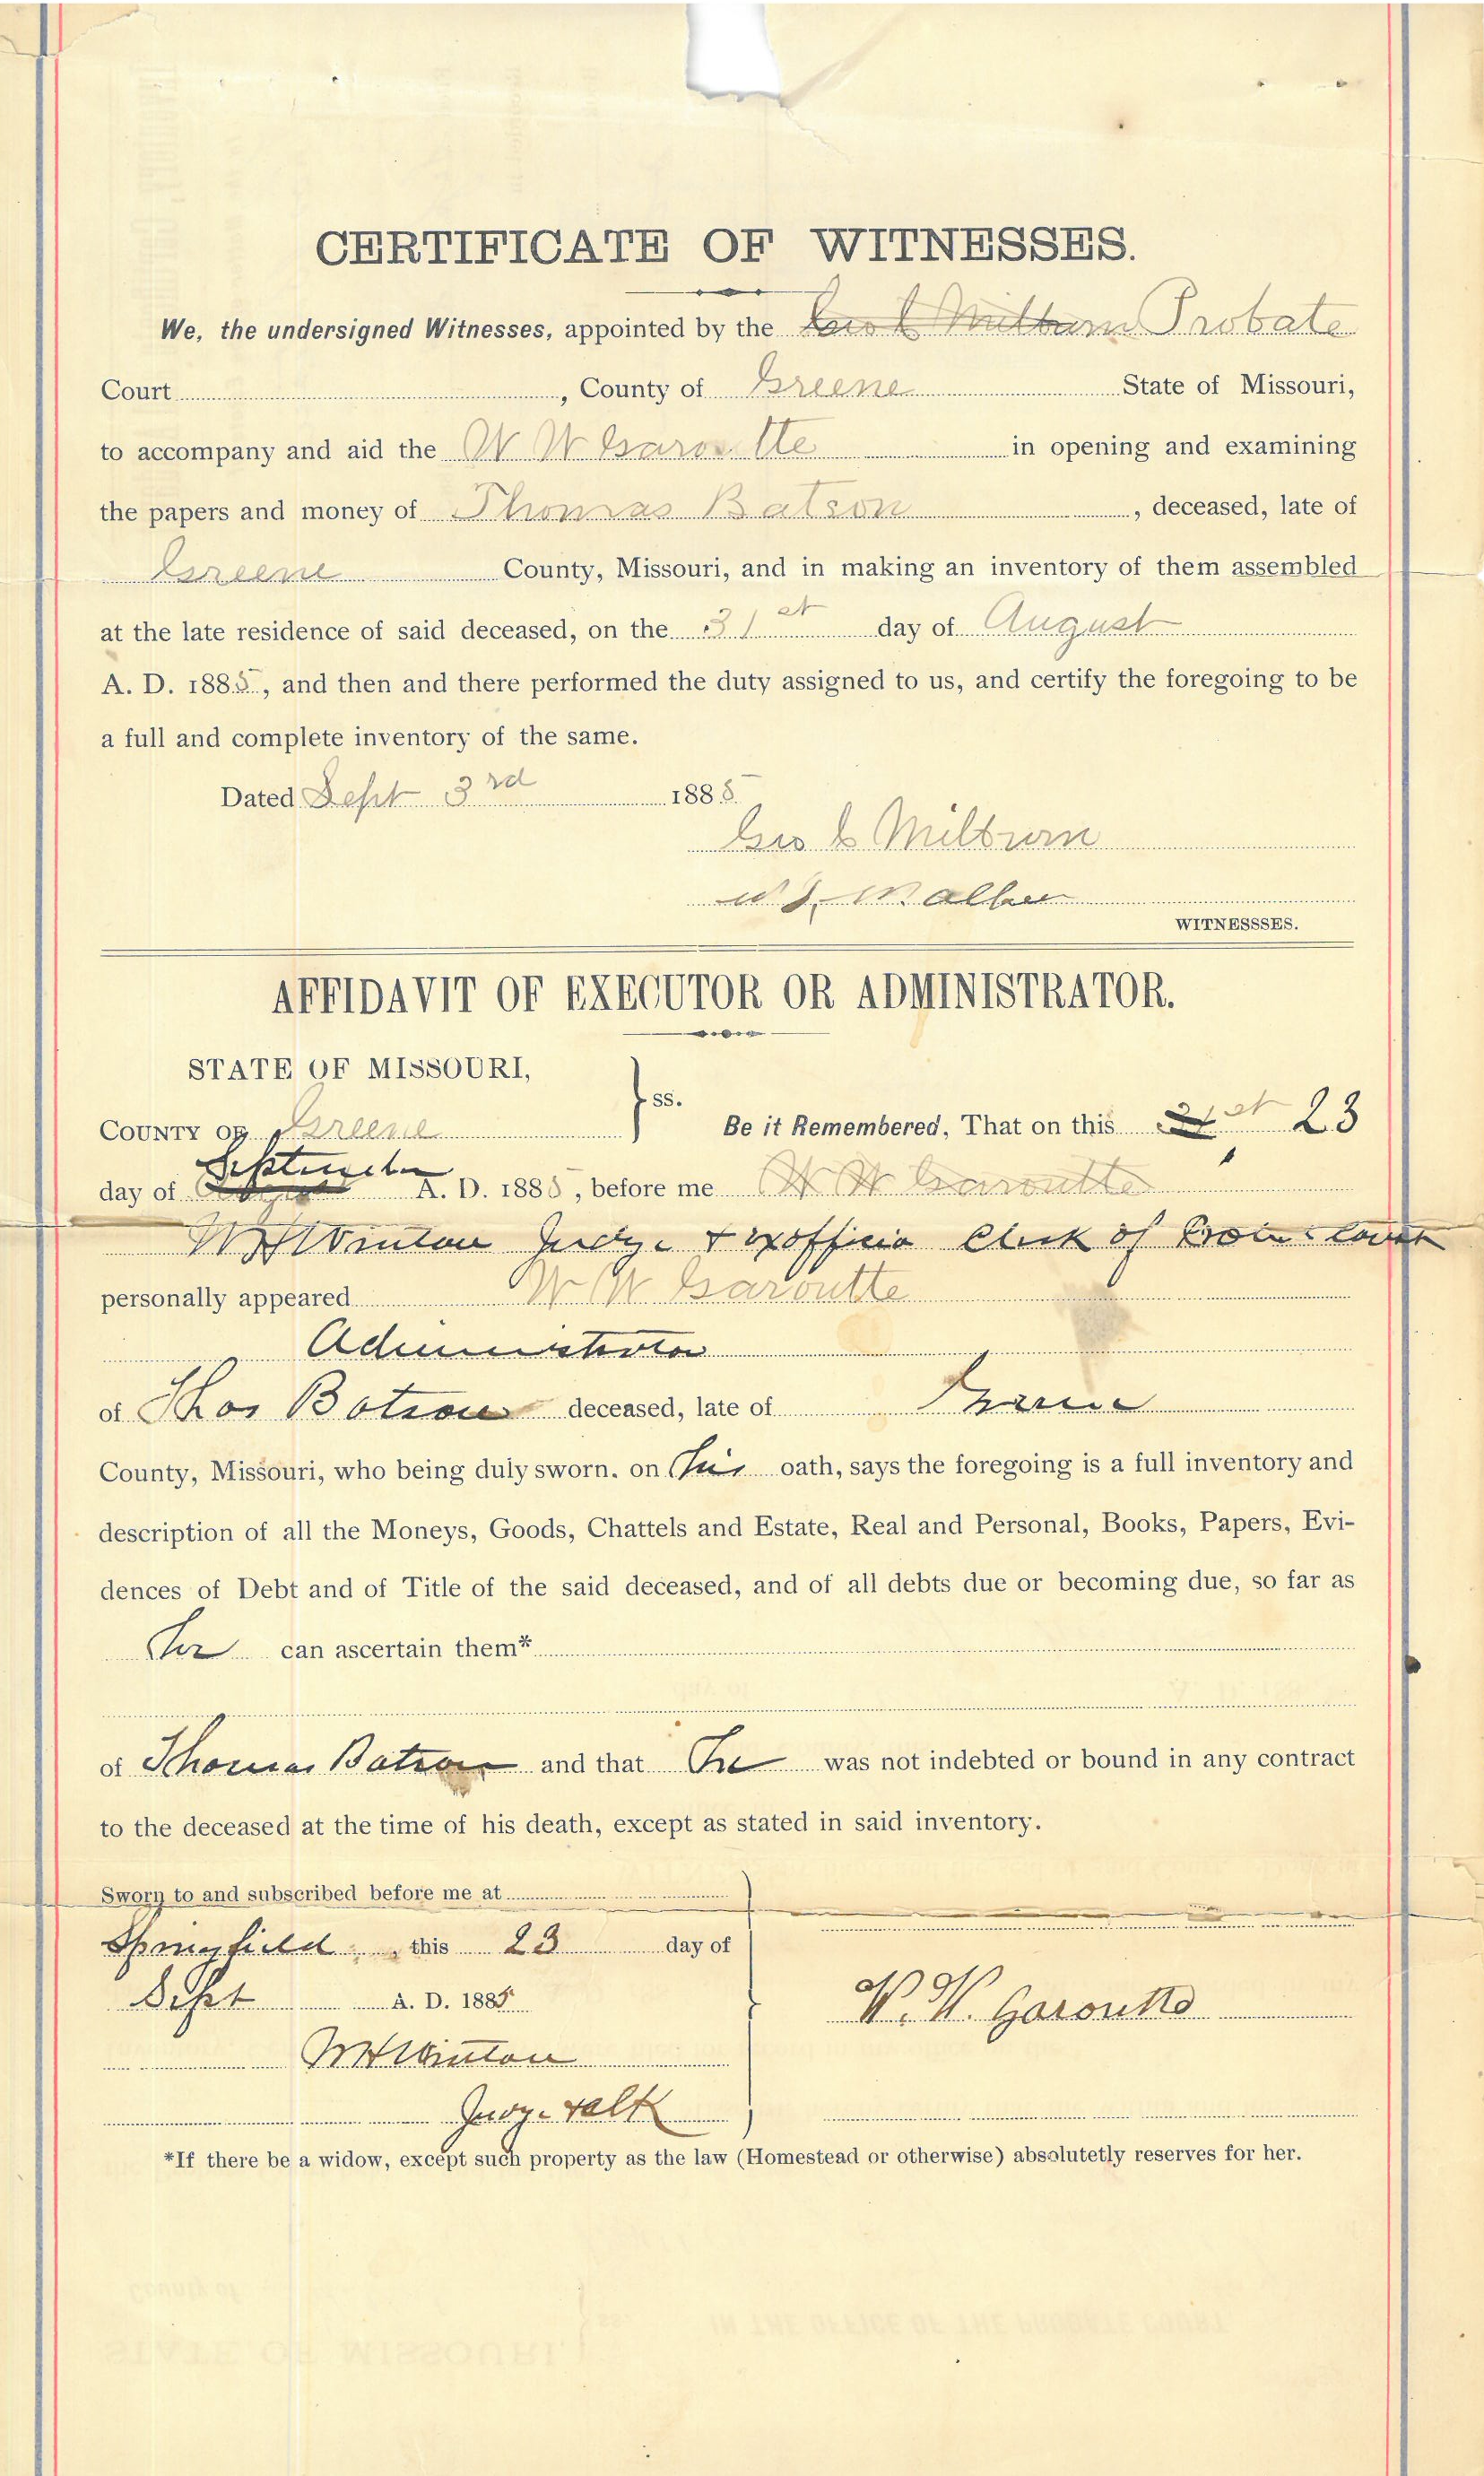 CERTIFICATE OF WITNESSES.
We, the undersigned Witnesses, appointed by the Geo C Milburn Probate
Court , County of Greene State of Missouri,
to accompany and aid the W W Garoutte in opening and examining
the papers and money of Thomas Batson , deceased, late of
Greene County, Missouri, and in making an inventory of them assembled
at the late residence of said deceased, on the 31st day of August
A. D. 1885, and then and there performed the duty assigned to us, and certify the foregoing to be
a full and complete inventory of the same.
Dated Sept 3rd 1885
Geo C Milburn
W J. Walker
WITNESSSES.
AFFIDAVIT OF EXECUTOR OR ADMINISTRATOR.
STATE OF MISSOURI,
COUNTY OF Greene } ss. Be it Remembered, That on this 31st 23
day of August September A. D. 1885, before me W W Garoutte
W H Winton Judge & exofficio Clerk of Probate Court
personally appeared W W Garoutte
Administrator
of Thos Batson deceased, late of Greene
County, Missouri, who being duly sworn. on his oath, says the foregoing is a full inventory and
description of all the Moneys, Goods, Chattels and Estate, Real and Personal, Books, Papers, Evi-
dences of Debt and of Title of the said deceased, and of all debts due or becoming due, so far as
he can ascertain them*
of Thomas Batson and that he was not indebted or bound in any contract
to the deceased at the time of his death, except as stated in said inventory.
Sworn to and subscribed before me at
Springfield, this 23 day of
Sept A. D. 1885
W. W. Garoutte
W H Winton
Judge & Clk
*If there be a widow, except such property as the law (Homestead or otherwise) absolutetly reserves for her.